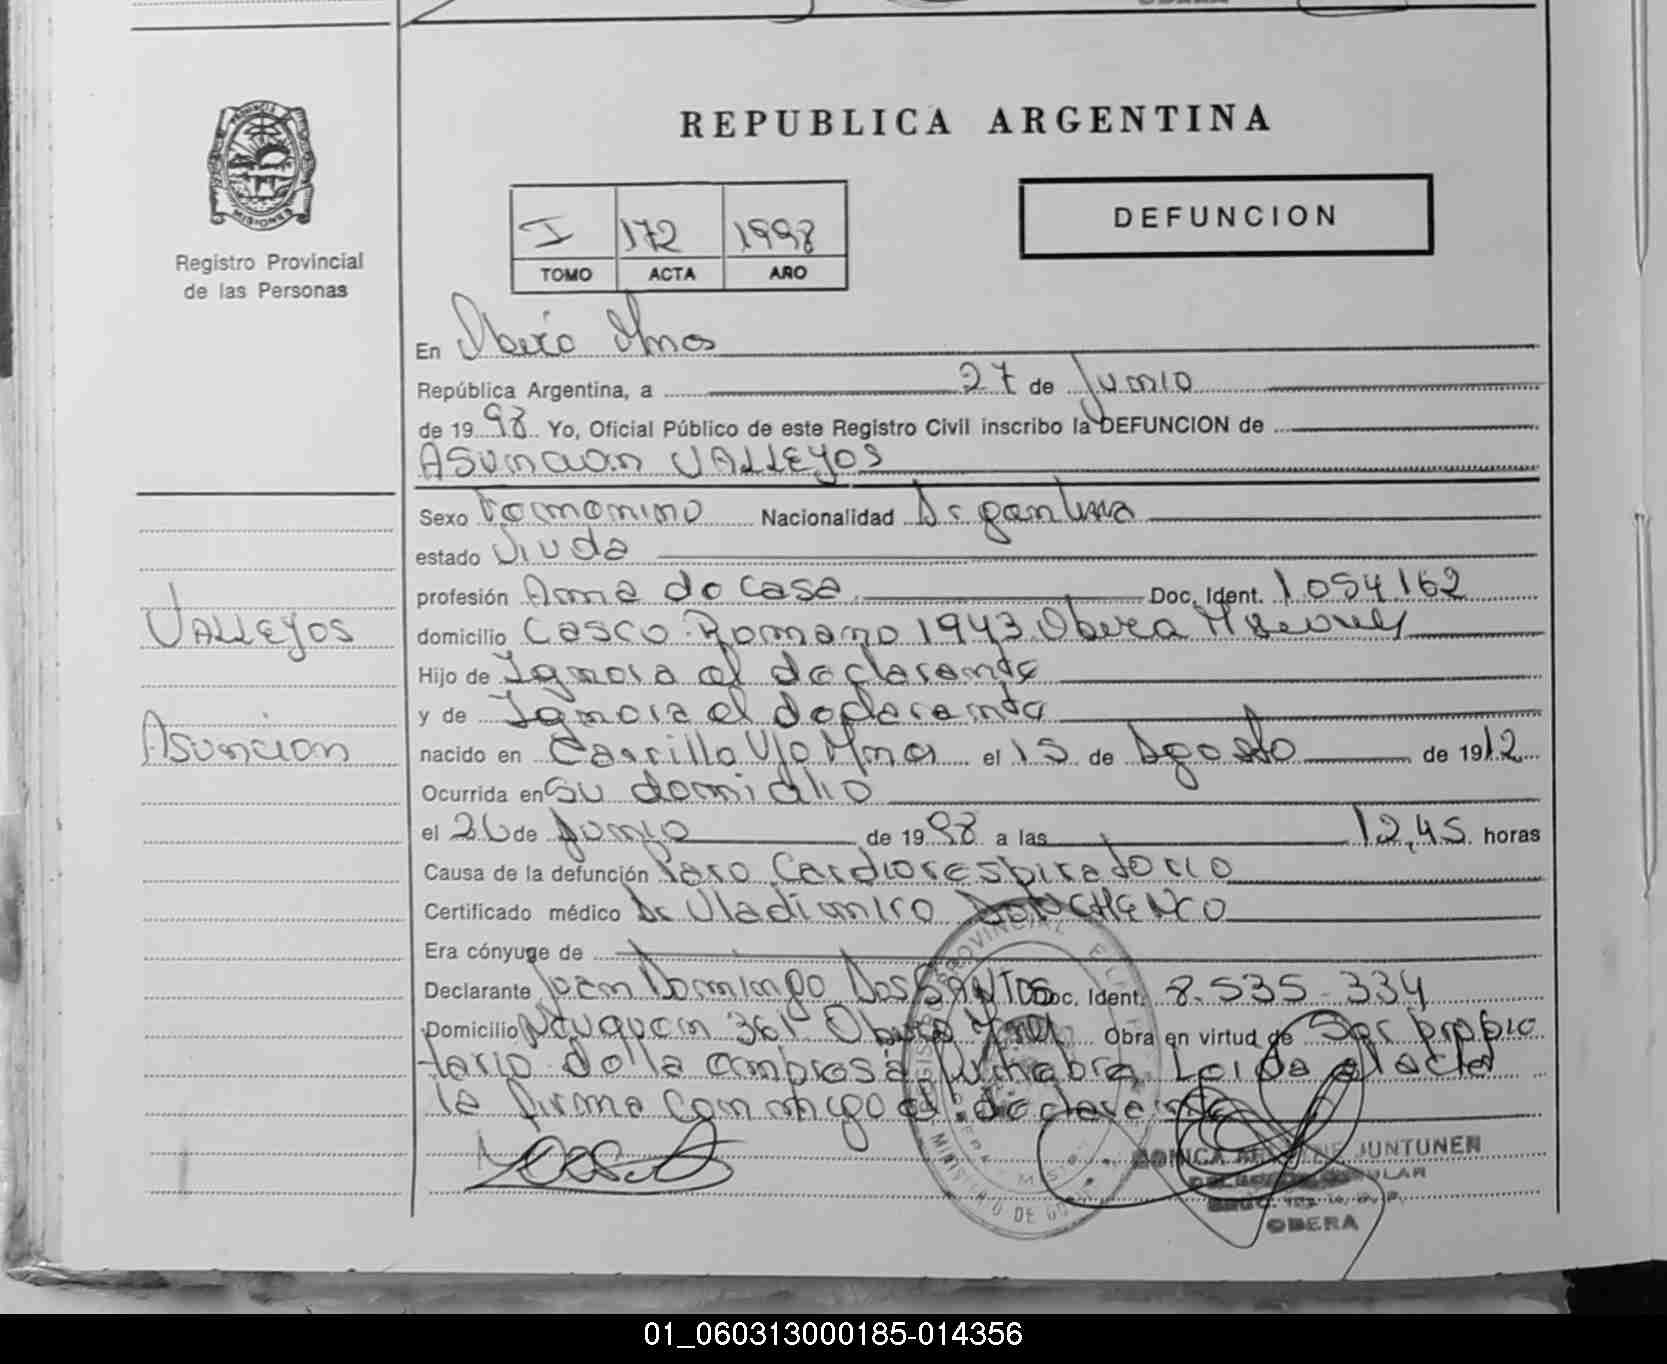 PROVINCIA
MISIONES
Registro Provincial
de las Personas
REPUBLICA ARGENTINA
I 172 1998
TOMO ACTA AÑO
DEFUNCION
En Oberá Mnes
República Argentina, a 27 de Junio
de 1998 Yo, Oficial Público de este Registro Civil inscribo la DEFUNCION de
ASUNCION VALLEJOS
Sexo Femenino Nacionalidad Argentina
estado Viuda
profesión Ama de Casa Doc. Ident. 1054162
domicilio Casco Romano 1943 Obera Misiones
Hijo de Ignora el declarante
y de Ignora el declarante
nacido en Cerrillo Vjo Mnes el 15 de Agosto de 1912
Ocurrida en su domicilio
el 26 de Junio de 1998 a las 12,45 horas
Causa de la defunción Paro Cardiorespiratorio
Certificado médico Dr Vladimiro
Era cónyuge de
Declarante Juan Domingo Dos SANTOS Doc. Ident. 8.535.334
Domicilio Neuquen 361 Obera Mnes Obra en virtud de Ser propie
tario de la empresa funebre Leida el acta
la firma conmigo el declarante
VALLEJOS
Asuncion
JUNTUNEN
OBERA
01_060313000185-014356